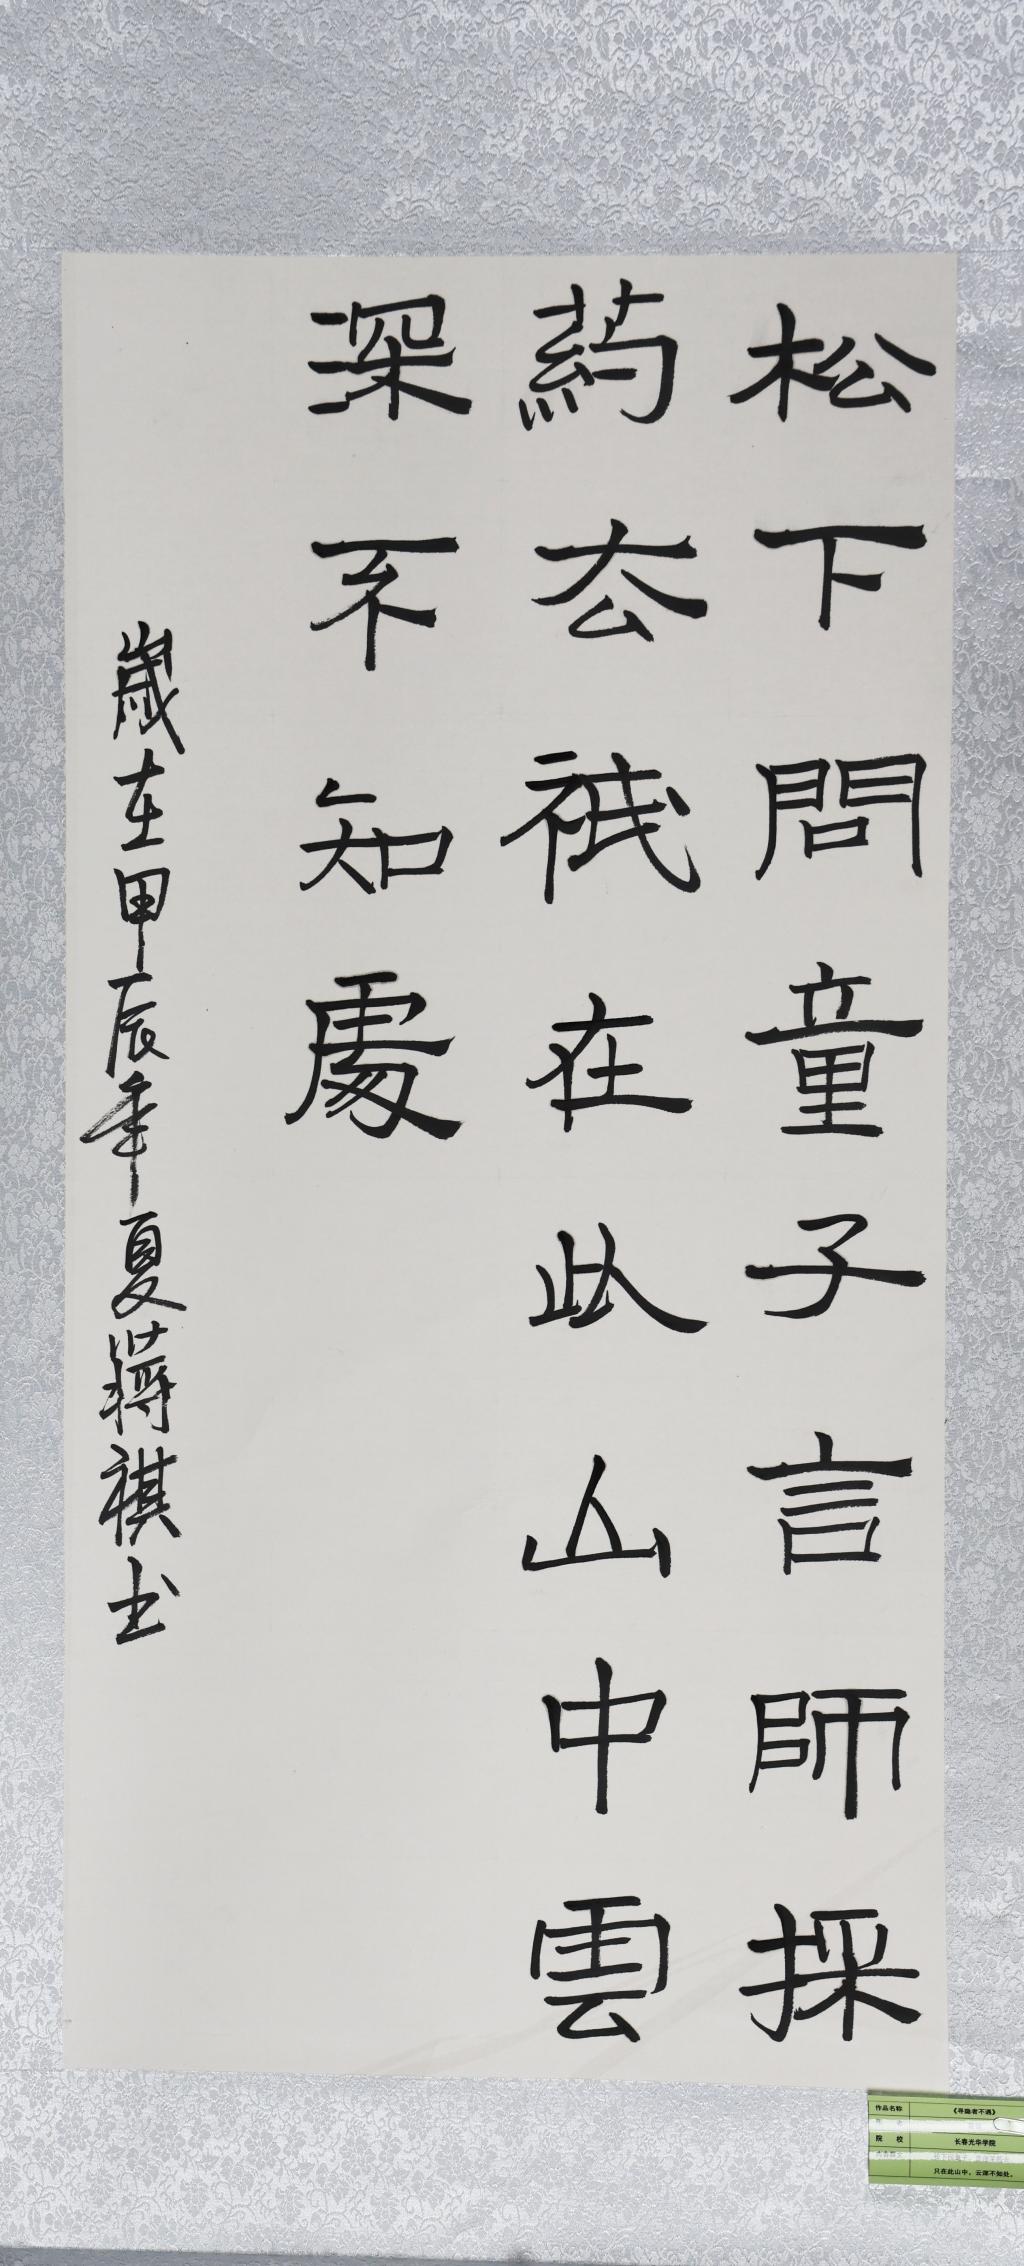 松下問童子言師採
葯去祗在此山中雲
深不知處
歲在甲辰年夏蔣祺书
作品名称 《寻隐者不遇》
院校 长春光华学院
只在此山中，云深不知处。